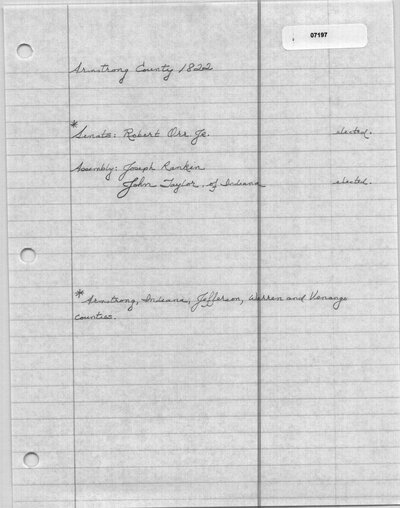 07197
Armstrong County 1822
*
Senate: Robert Orr Jr. elected.
Assembly: Joseph Rankin
John Taylor, of Indiana elected.
* Armstrong, Indiana, Jefferson, Warren and Venango
counties.